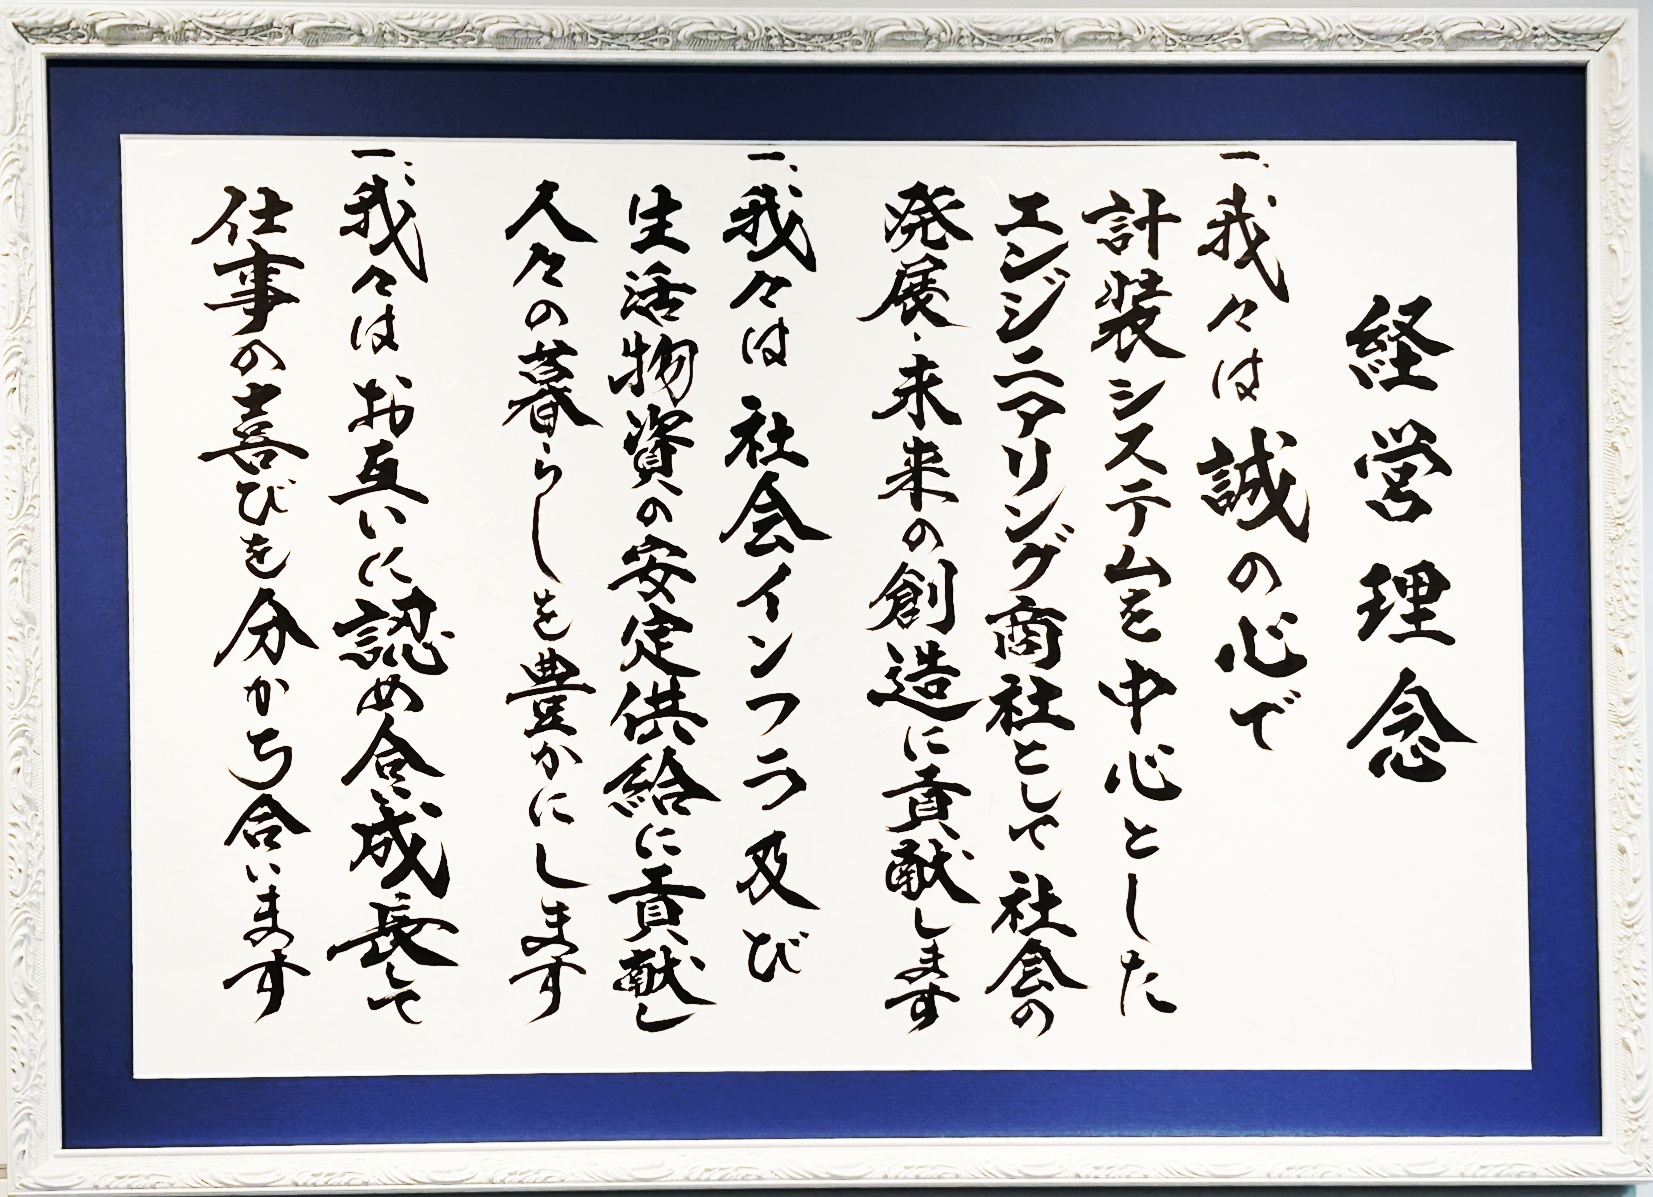 経営理念
一、我々は誠の心で
計装システムを中心とした
エンジニアリング商社として社会の
発展、未来の創造に貢献します
一、我々は社会インフラ及び
生活物資の安定供給に貢献し
人々の暮らしを豊かにします
一、我々はお互いに認め合い成長して
仕事の喜びを分かち合います